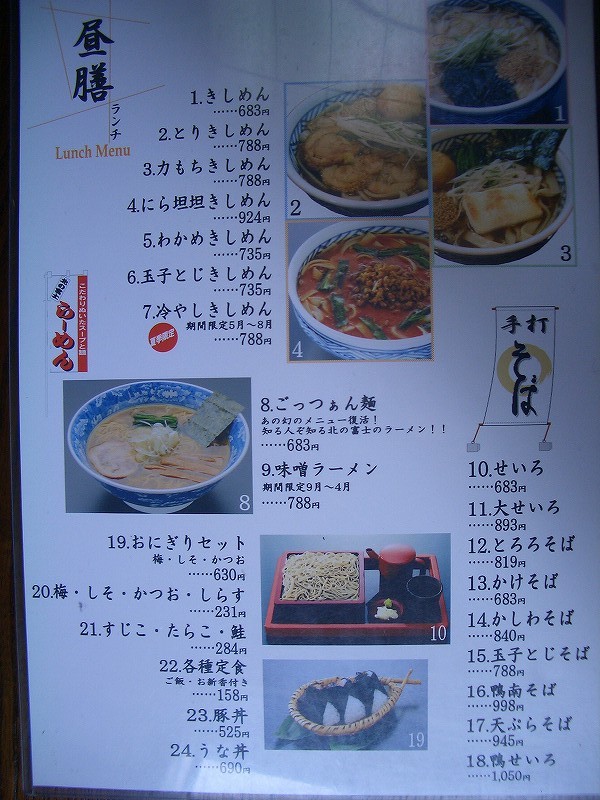 昼膳
ランチ
Lunch Menu
1.きしめん
……683円
2.とりきしめん
……788円
3.力もちきしめん
……788円
4.にら坦坦きしめん
……924円
5.わかめきしめん
……735円
6.玉子とじきしめん
……735円
7.冷やしきしめん
期間限定5月～8月
夏季限定
……788円
1
2
3
4
こだわりぬいたスープと麺
らーめん
8
8.ごっつぁん麺
あの幻のメニュー復活！
知る人ぞ知る北の富士のラーメン！！
……683円
9.味噌ラーメン
期間限定9月～4月
……788円
手打
そば
10.せいろ
……683円
11.大せいろ
……893円
12.とろろそば
……819円
13.かけそば
……683円
14.かしわそば
……840円
15.玉子とじそば
……788円
16.鴨南そば
……998円
17.天ぷらそば
……945円
18.鴨せいろ
……1,050円
19.おにぎりセット
梅・しそ・かつお
……630円
20.梅・しそ・かつお・しらす
……231円
21.すじこ・たらこ・鮭
……284円
22.各種定食
ご飯・お新香付き
……158円
23.豚丼
……525円
24.うな丼
……690円
10
19